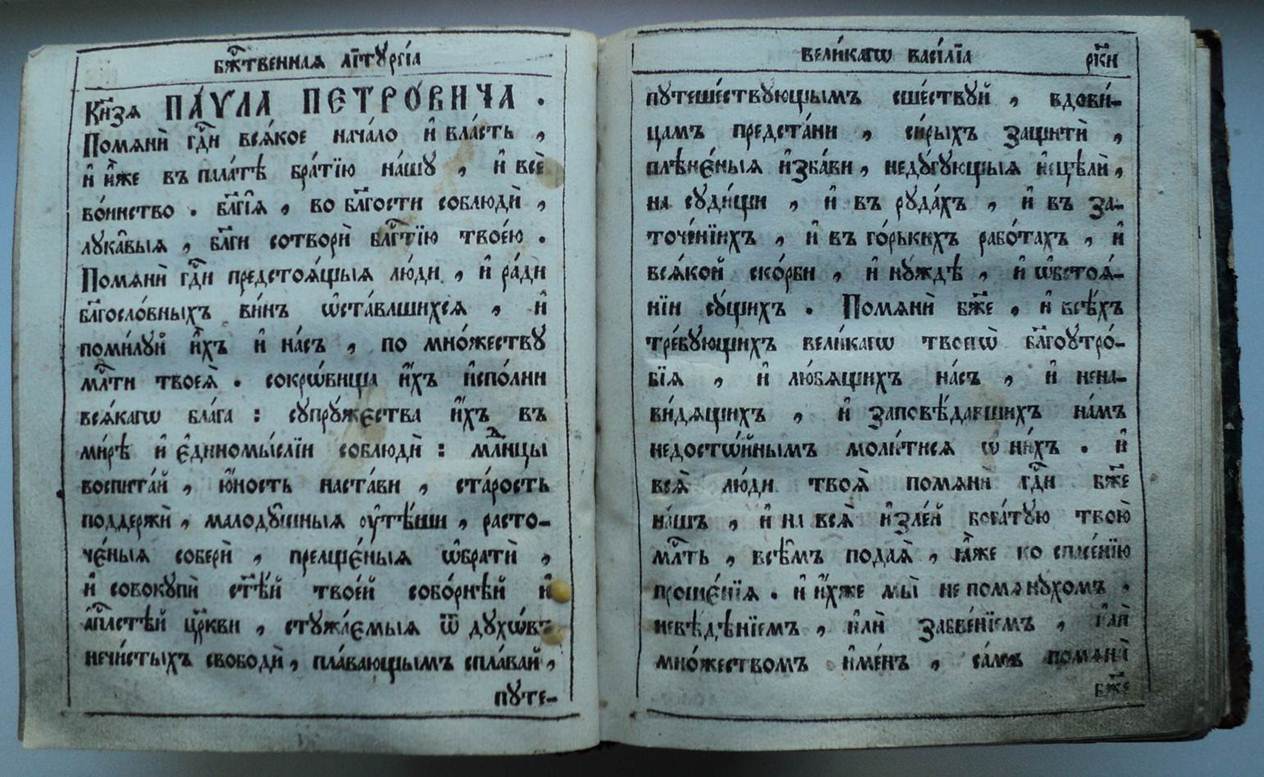 бж҃твенная лїтꙋргі́а
Кн҃зя ПА́ѴЛА ПЕТРО́ВИЧА .
Помѧнѝ гдⷭ҇и всѧ́кое нача́ло и҆ вла́сть ,
и҆ и҆̀же въ пала́тѣ бра́тїю на́шꙋ , и҆ всѐ
во́инство . бл҃гі́ѧ , во бл҃гости соблюдѝ ,
лꙋка̑выѧ , бл҃ги сотворѝ бл҃гтїю твое́ю .
Помѧнѝ гдⷭ҇и предстоѧ́щыѧ лю́ди , и҆ ра́ди
бл҃госло́вныхъ ви́нъ ѡ҆ста́вльшихсѧ , и҆
поми́лꙋй и҆̀хъ и҆ на́съ , по мно́жествꙋ
млⷭ҇ти твоеѧ̀ . сокрѡ́вища и҆́хъ и҆спо́лни
всѧ́кагѡ бла́га : сꙋпрꙋ́жєства и҆́хъ въ
ми́рѣ и҆ є҆диномы́слїи соблюдѝ : младⷣнцы
воспита́й , ю҆́ность наста́ви , ста́рость
поддержѝ , малодꙋ́шныѧ ᲂу҆тѣ́ши , расто-
че́ныѧ соберѝ , прелще́ныѧ ѡ҆братѝ ,
и҆ совокꙋпѝ ст҃ѣй твое́й собо́рнѣй и҆
а҆пⷭ҇лстѣй цр҃кви , стꙋжа́ємыѧ ѿ дꙋхѡ́въ
нечи́стыхъ свободѝ , пла́вающымъ спла́вай ,
пꙋте-
вели́кагѡ васі́лїа рк҃и
пꙋтеше́ствꙋющымъ сше́ствꙋй , вдови́-
цамъ предста́ни , си́рыхъ защитѝ ,
плѣне́ныѧ и҆зба́ви , недꙋ́гꙋющыѧ и҆сцѣлѝ ,
на сꙋди́щи , и҆ въ рꙋда́хъ , и҆ въ за-
точе́нїихъ , и҆ въ го́рькихъ рабо́тахъ , и҆
всѧ́кой ско́рби , и҆ нꙋ́ждѣ , и҆ ѡ҆бстоѧ́-
нїи сꙋ́щихъ . Помѧнѝ бж҃е , и҆ всѣ́хъ
тре́бꙋющихъ вели́кагѡ твоегѡ̀ бл҃гоꙋтро́-
бїѧ , и҆ лю́бѧщихъ на́съ , и҆ нена-
ви́дѧщихъ , и҆ заповѣ́давшихъ на́мъ
недостѡ́йнымъ моли́тисѧ ѡ҆ ни́хъ . и҆
всѧ̀ лю́ди твоѧ̀ помѧнѝ гдⷭ҇и бж҃е
на́шъ , и҆ на всѧ̀ и҆злѣ́й бога́тꙋю твою̀
млⷭ҇ть , всѣ̑мъ подаѧ̀ , ꙗ҆̀же ко спасе́нїю
проше́нїѧ . и҆ и҆́хже мы̀ не помѧнꙋ́хомъ .
невѣ́дѣнїемъ , и҆лѝ забве́нїемъ , и҆лѝ
мно́жествомъ и҆ме́нъ , са́мъ помѧнѝ
бж҃е